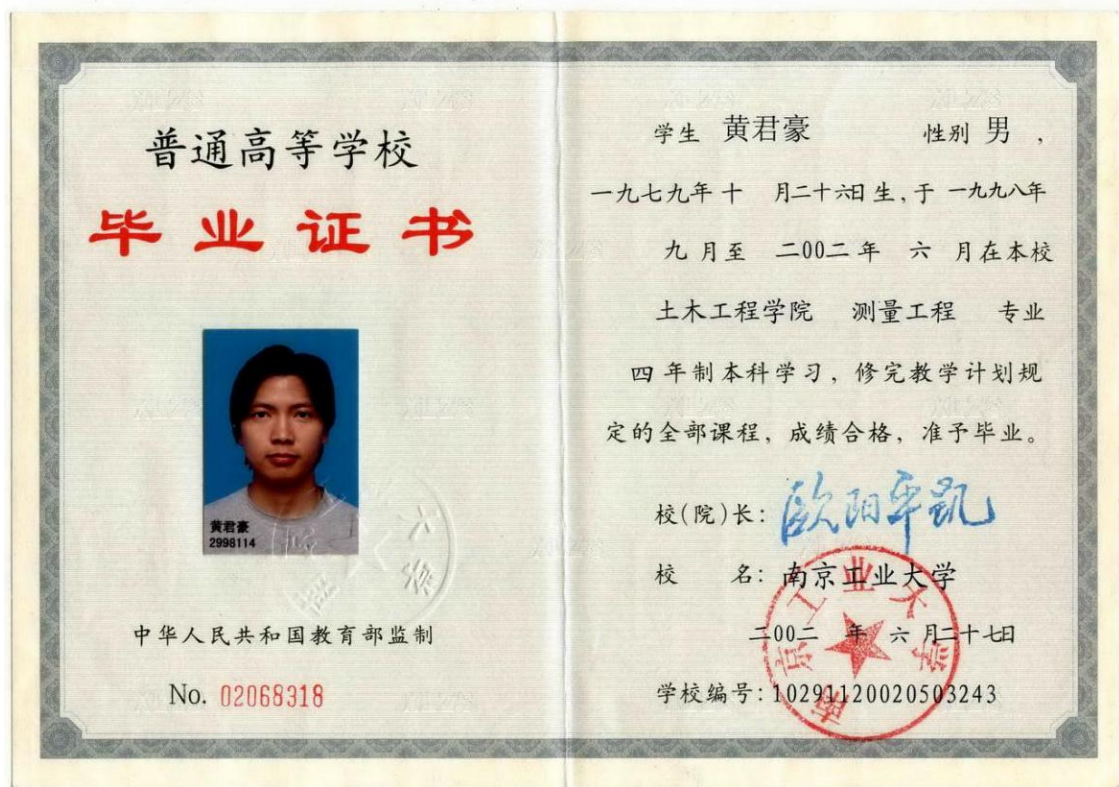 普通高等学校
毕业证书
黄君豪
2998114
中华人民共和国教育部监制
No. 02068318
学生 黄君豪 性别 男,
一九七九年十 月二十六日生,于 一九九八年
九月至 二00二年 六 月在本校
土木工程学院 测量工程 专业
四年制本科学习,修完教学计划规
定的全部课程,成绩合格,准予毕业。
校(院)长: 欧阳平凯
校 名: 南京工业大学
二00二 年 六 月二十七日
学校编号:10291120020503243
南京工业大学